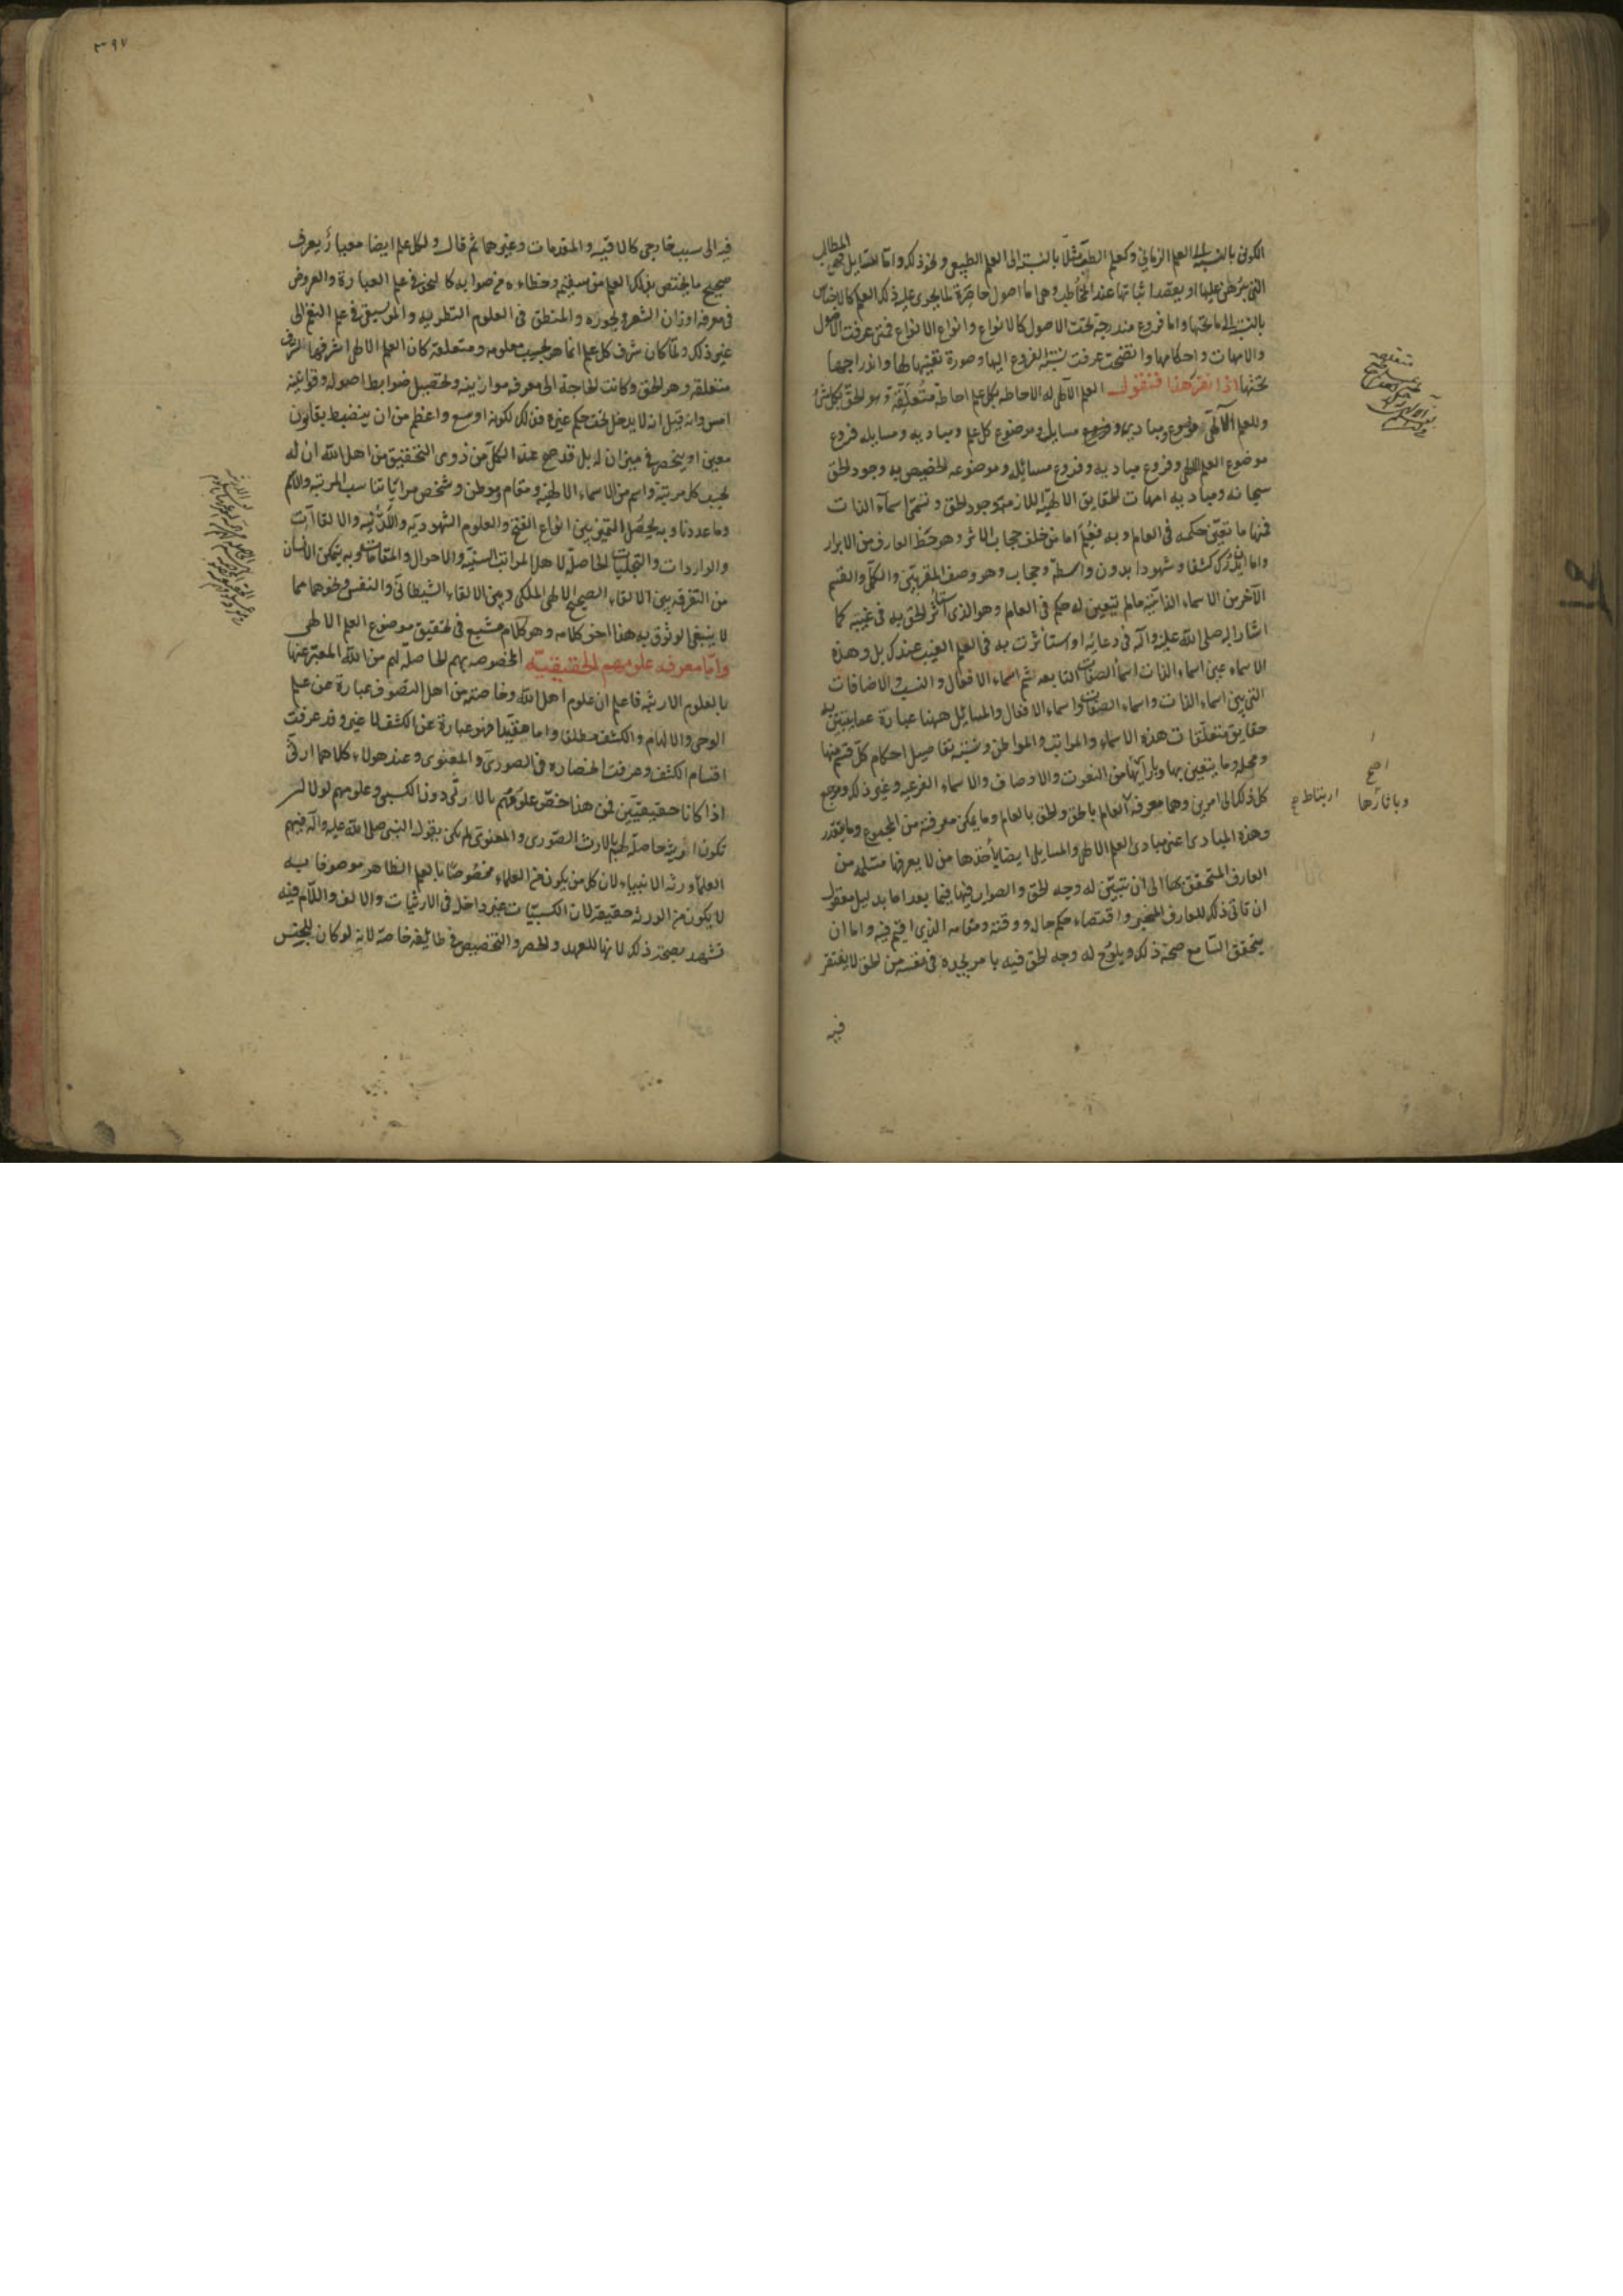 الكونى بالنسبة الى العلم الزمانى وكعلم الطب مثلا بالنسبة الى العلم الطبيعى ونحو ذلك واما المسايل فهى المطالب
التى يبرهن عليها او يقصد اثباتها عند المخاطب وهى اما اصول حاصرة لما يحوى عليه ذلك العلم كالاجناس
بالنسبة الى ما تحتها واما فروع مندرجة تحت الاصول كالانواع وانواع الانواع فمتى عرفت الاصول
والامهات واحكامها واتضحت عرفت نسبة الفروع اليها وصورة تبعيتها لها واندراجها
تحتها اذا تقرر هذا فنقول العلم الالهى له الاحاطة بكل علم احاطة متعلقه وهو الحق بكل شىء
وللعلم الالهى موضوع ومبادى ومسايل وموضوع كل علم ومباديه ومسايله فروع
موضوع العلم الالهى وفروع مباديه وفروع مسائله وموضوعه الخصيص به وجود الحق
سبحانه ومباديه امهات الحقايق الالهية اللازمة وجود الحق وتسمى اسماء الذات
فمنها ما تعين حكمه فى العالم وبه فيعلم اما من خلف حجاب الاثر وهو حظ العارف من الابرار
واما ان يدرك كشفا وشهودا بدون واسطة وحجاب وهو وصف المقربين والكمل والقسم
الآخر من الاسماء الذاتية مالم يتعين له حكم فى العالم وهو الذى استأثر الحق به فى غيبه كما
اشار اليه صلى الله عليه وآله فى دعائه او استأثرت به فى العلم الغيب عندك بل وهذه
الاسماء عين اسماء الذات اسماء الصفات التابعه ثم اسماء الافعال والنسب والاضافات
التى بين اسماء الذات واسماء الصفات واسماء الافعال والمسايل ههنا عبارة عما يتبين به
حقايق متعلقات هذه الاسماء والمراتب والمواطن ونسبة تفاصيل احكام كل قسم منها
ومحله وما يتعين بها وبآثارها من النعوت والاوصاف والاسماء الفرعيه وغير ذلك ومرجع
كل ذلك الى امرين وهما معرفة العالم بالحق والحق بالعالم وما يمكن معرفته من المجموع وما يتعذر
وهذه المبادى اعنى مبادى العلم الالهى والمسايل ايضا يأخذها من لا يعرفها مسلمة من
العارف المتحقق بها الى ان تتبين له وجه الحق والصواب فيها فيما بعد اما بدليل معقول
ان تأتى ذلك للعارف المخبر واقتضاه حكم حاله ووقته ومقامه الذى اقيم فيه واما ان
يتحقق السامع صحة ذلك ويلوح له وجه الحق فيه بامر يجده فى نفسه من الحق لا يفتقر
فيه
ارتباط صح
وباثارها
اصح
٣٩٧
فيه الى سبب خارجى كالاقيسة والمقدمات وغيرهما ثم قال ولكل علم ايضا معيار يعرف
صحيح ما يختص بذلك العلم من سقيمه وخطاءه من صوابه كالنحو فى علم العبارة والعروض
فى معرفة اوزان الشعر وبحوره والمنطق فى العلوم النظريه والموسيقى فى علم النغم الى
غير ذلك ولما كان شرف كل علم انما هو بحسب معلومه ومتعلقه كان العلم الالهى اشرفها لشرف
متعلقه وهو الحق وكانت الحاجة الى معرفة موازينه وتحصيل ضوابط اصوله وقوانينه
امس وانه قيل انه لا يدخل تحت حكم غيره فذلك لكونه اوسع واعظم من ان ينضبط بقانون
معين او ينحصر فى ميزان له بل قد صح عند الكمل من ذوى التحقيق من اهل الله ان له
بحسب كل مرتبة واسم من الاسماء الالهية ومقام وموطن وشخص ميزانا يناسب المرتبه والاسم
وما عددنا وبه يحصل التميز بين انواع الفتح والعلوم الشهوديه واللدنيه والالقاآت
والواردات والتجليات الحاصلة لاهل المراتب السنية والاحوال والمقامات وبه يتمكن الانسان
من التفرقه بين الالقاء الصحيح الالهى الملكى وبين الالقاء الشيطانى والنفس ونحوهما مما
لا ينبغى الوثوق به هذا اخر كلامه وهو كلام مشبع فى تحقيق موضوع العلم الالهى
واما معرفة علومهم الحقيقيه المخصوصه بهم الحاصلة لهم من الله المعبر عنها
بالعلوم الارثيه فاعلم ان علوم اهل الله وخاصته من اهل التصوف عبارة عن علم
الوحى والالهام والكشف مطلقا واما مقيدا فهو عبارة عن الكشف لا غير وقد عرفت
اقسام الكشف وعرفت انحصاره فى الصورى والمعنوى وعند هولاء كلاهما ارثى
اذا كانا حقيقيين فمن هنا خص علومهم بالارثى دون الكسبى وعلومهم لو لا لم
تكون ارثيه حاصلة لهم بالارث الصورى والمعنوى لم يكن يقول النبى صلى الله عليه وآله فيهم
العلماء ورثة الانبياء لان كل من يكون من العلماء مخصوصا بالعلم الظاهر موصوفا به
لا يكون من الورثة حقيقة لان الكسبيات غير داخلة فى الارثيات والالف واللام فيه
تشهد بصحة ذلك لانها للعهد والحصر والتخصيص فى طايفة خاصة لانه لو كان للجنس